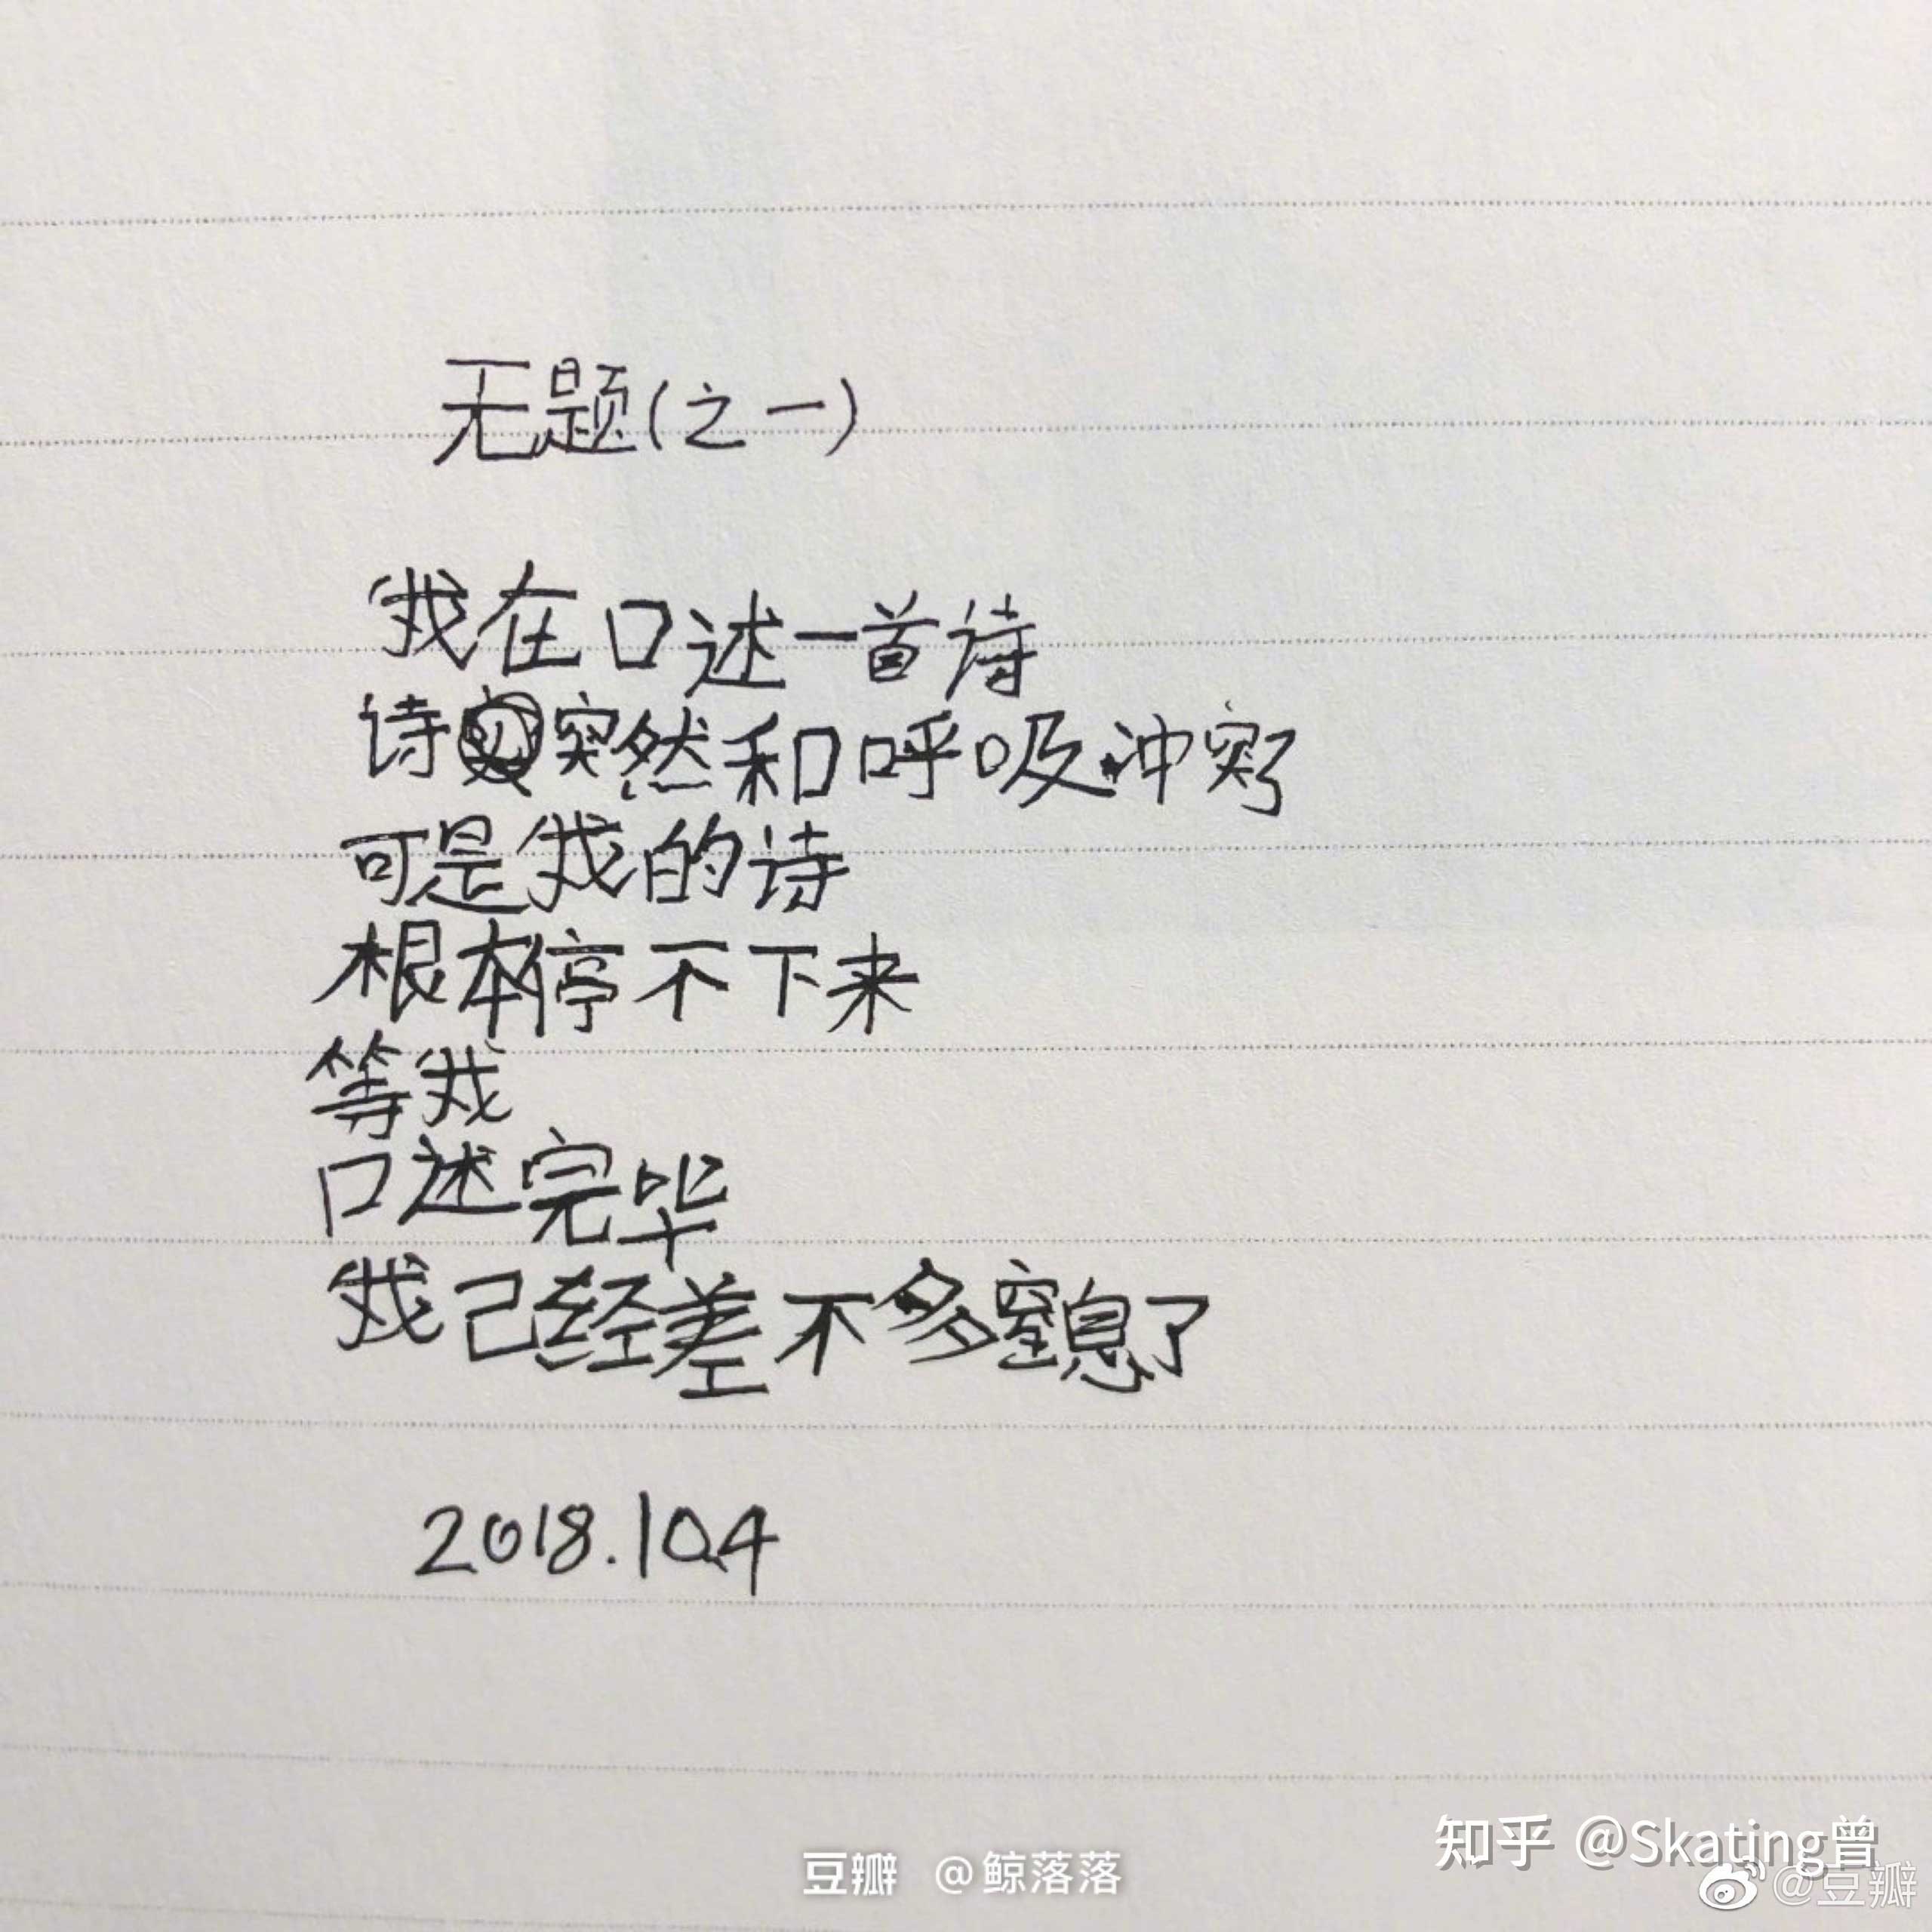 无题(之一)
我在口述一首诗
诗突然和呼吸冲突了
可是我的诗
根本停不下来
等我
口述完毕
我已经差不多窒息了
2018.10.4
知乎 @Skating曾
豆瓣 @鲸落落
@豆瓣